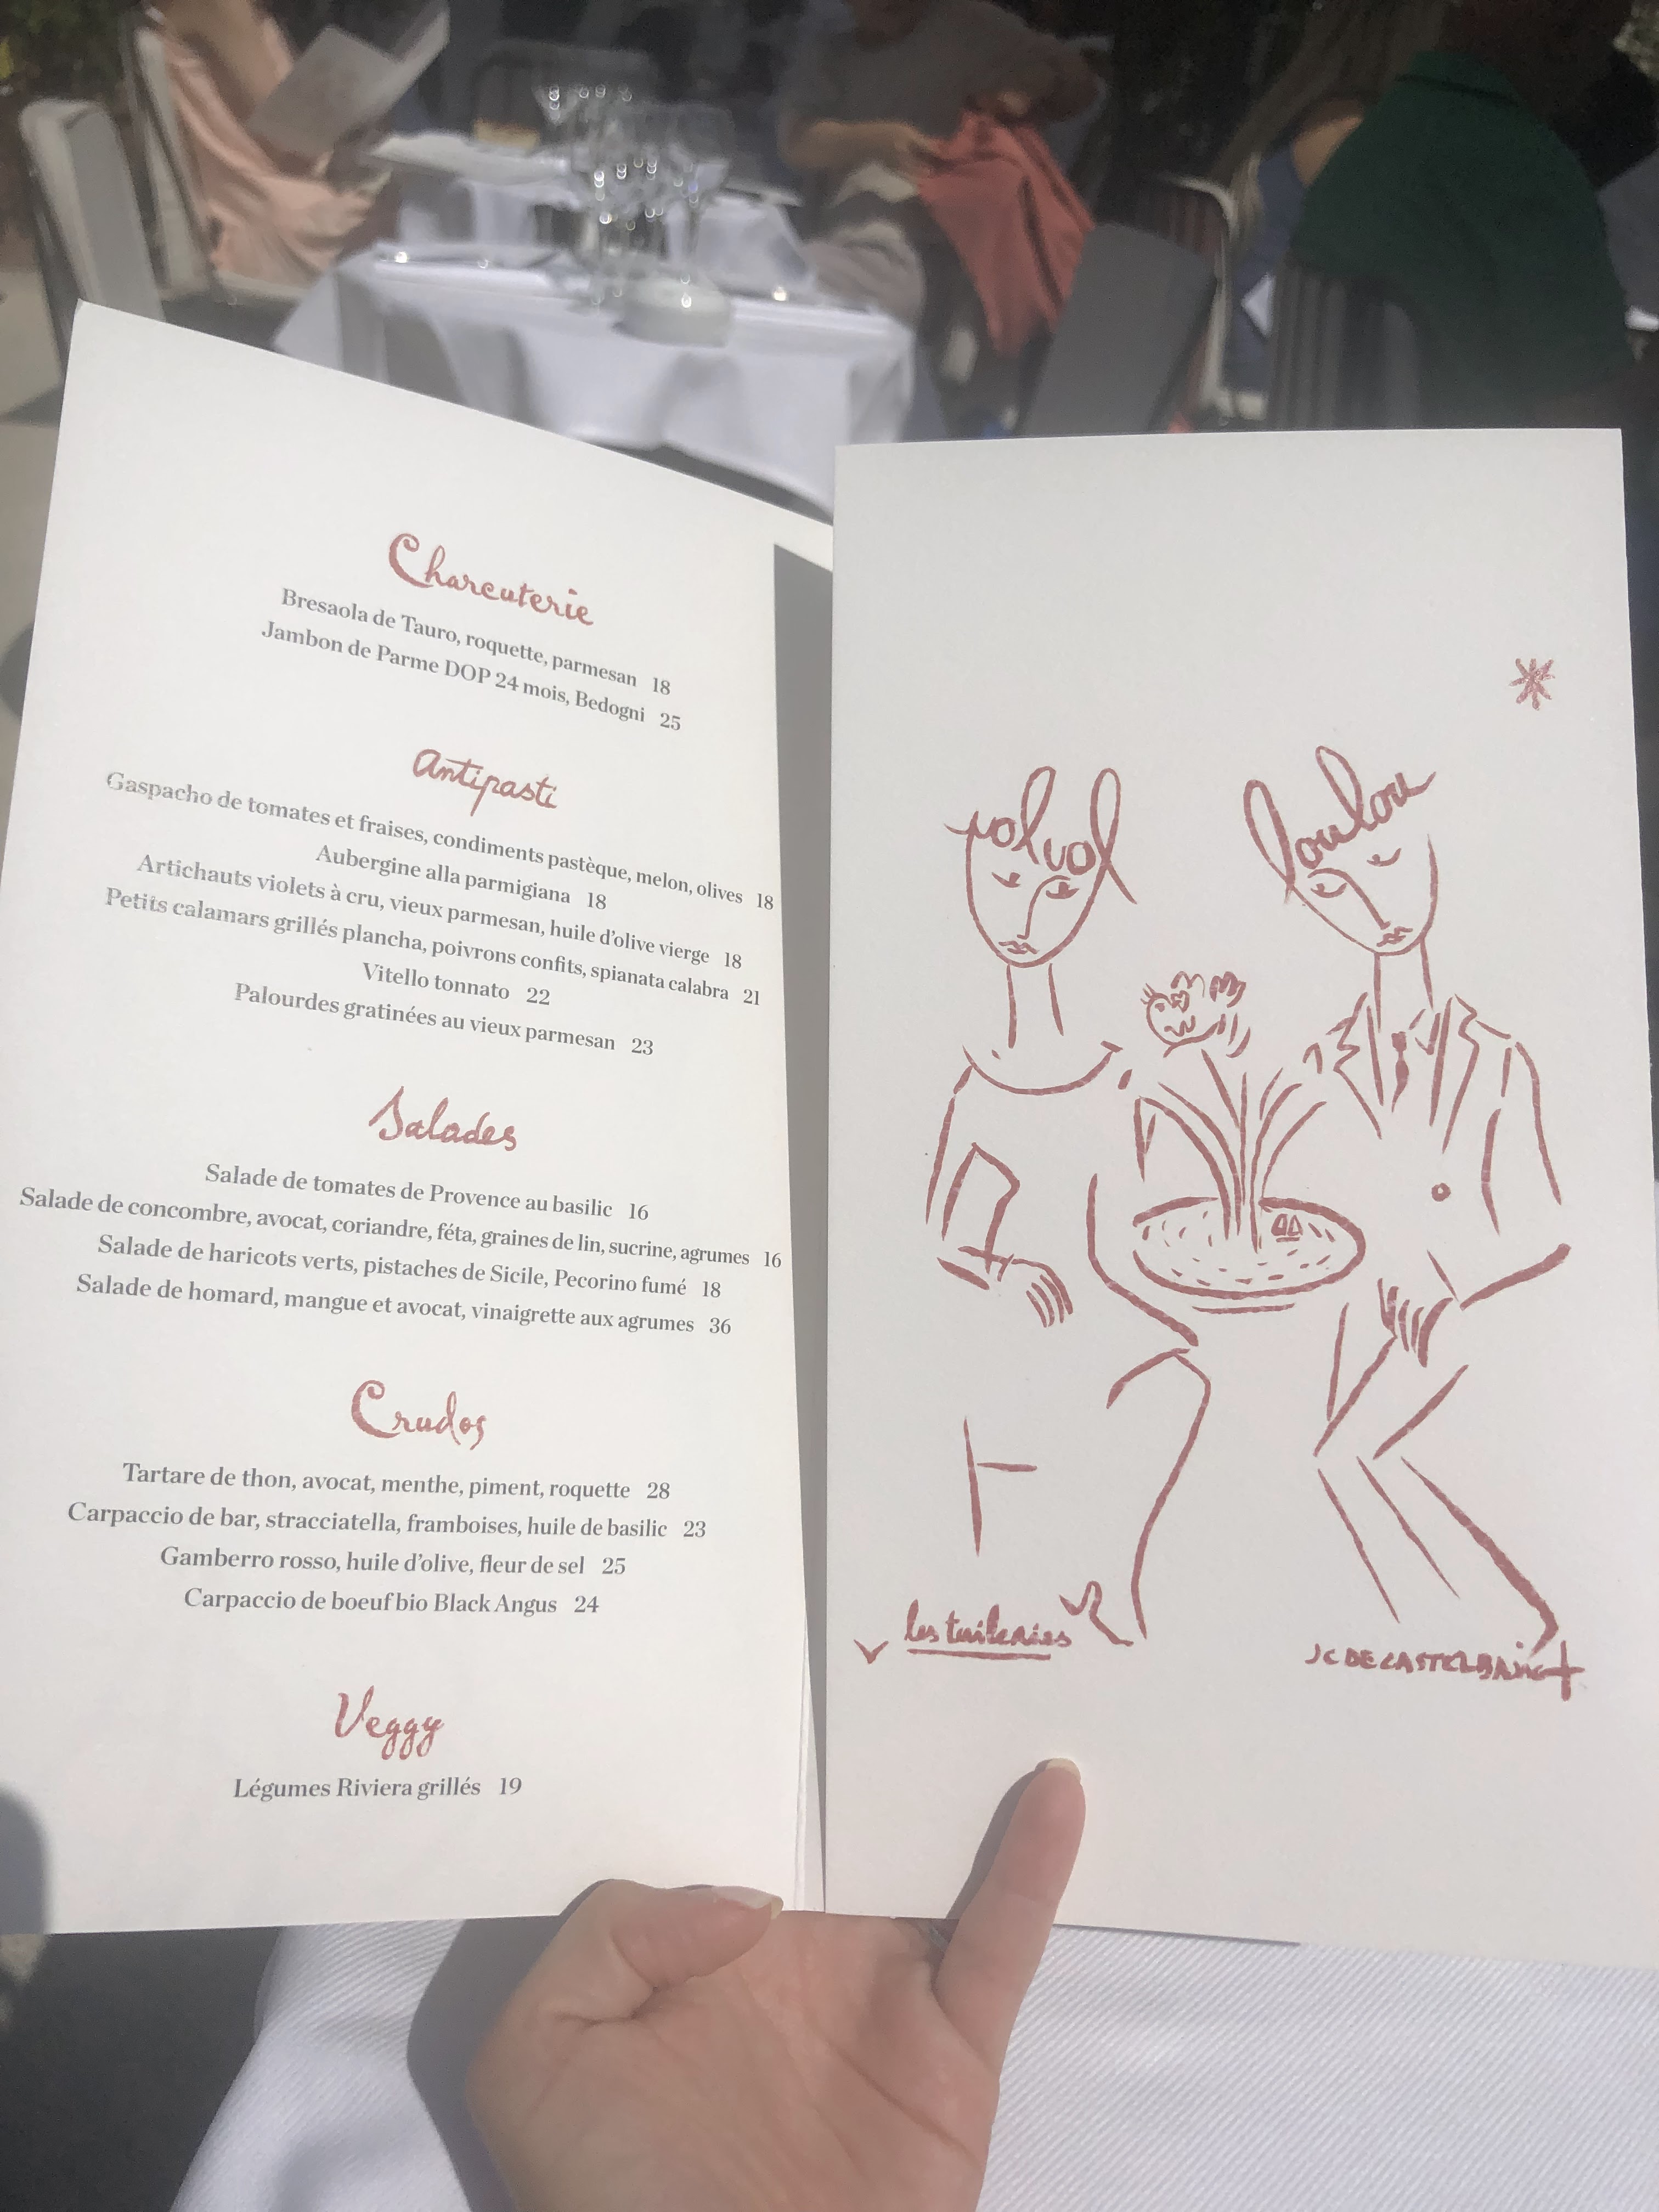 Charcuterie
Bresaola de Tauro, roquette, parmesan 18
Jambon de Parme DOP 24 mois, Bedogni 25
Antipasti
Gaspacho de tomates et fraises, condiments pastèque, melon, olives 18
Aubergine alla parmigiana 18
Artichauts violets à cru, vieux parmesan, huile d'olive vierge 18
Petits calamars grillés plancha, poivrons confits, spianata calabra 21
Vitello tonnato 22
Palourdes gratinées au vieux parmesan 23
Salades
Salade de tomates de Provence au basilic 16
Salade de concombre, avocat, coriandre, féta, graines de lin, sucrine, agrumes 16
Salade de haricots verts, pistaches de Sicile, Pecorino fumé 18
Salade de homard, mangue et avocat, vinaigrette aux agrumes 36
Crudos
Tartare de thon, avocat, menthe, piment, roquette 28
Carpaccio de bar, stracciatella, framboises, huile de basilic 23
Gamberro rosso, huile d'olive, fleur de sel 25
Carpaccio de boeuf bio Black Angus 24
Veggy
Légumes Riviera grillés 19
loulou
les tuileries
JC DE CASTELBAJAC